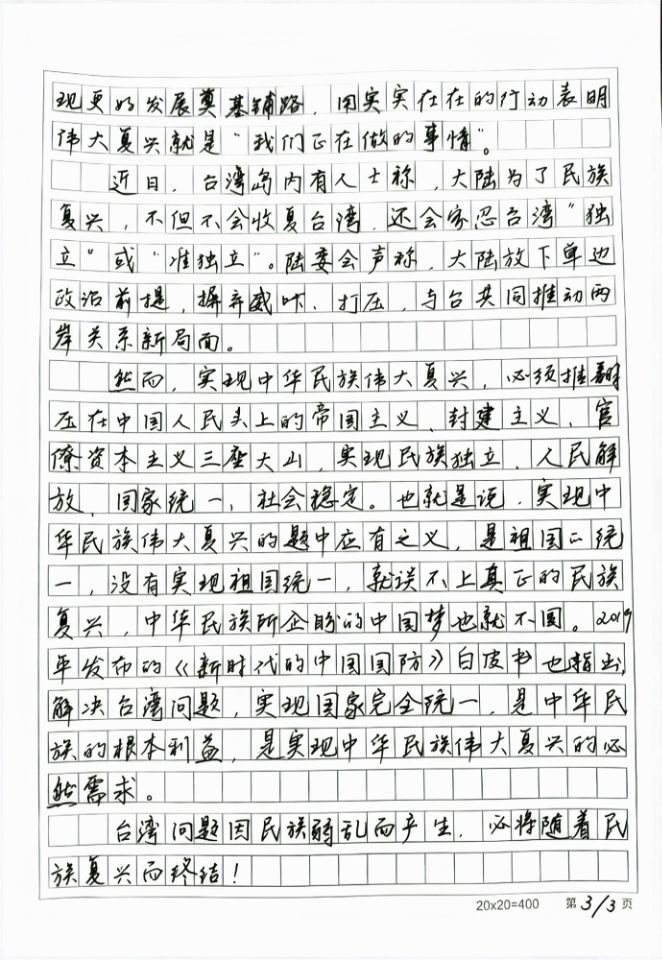 现更好发展奠基铺路，用实实在在的行动表明
伟大复兴就是“我们正在做的事情”。
近日，台湾岛内有人士称，大陆为了民族
复兴，不但不会收复台湾，还会容忍台湾“独
立”或“准独立”。陆委会声称，大陆放下单边
政治前提，摒弃威吓、打压，与台共同推动两
岸关系新局面。
然而，实现中华民族伟大复兴，必须推翻
压在中国人民头上的帝国主义、封建主义、官
僚资本主义三座大山，实现民族独立、人民解
放、国家统一、社会稳定。也就是说，实现中
华民族伟大复兴的题中应有之义，是祖国的统
一，没有实现祖国统一，就谈不上真正的民族
复兴，中华民族所企盼的中国梦也就不圆。2019
年发布的《新时代的中国国防》白皮书也指出，
解决台湾问题，实现国家完全统一，是中华民
族的根本利益，是实现中华民族伟大复兴的必
然需求。
台湾问题因民族弱乱而产生，必将随着民
族复兴而终结！
20x20=400 第3/3页